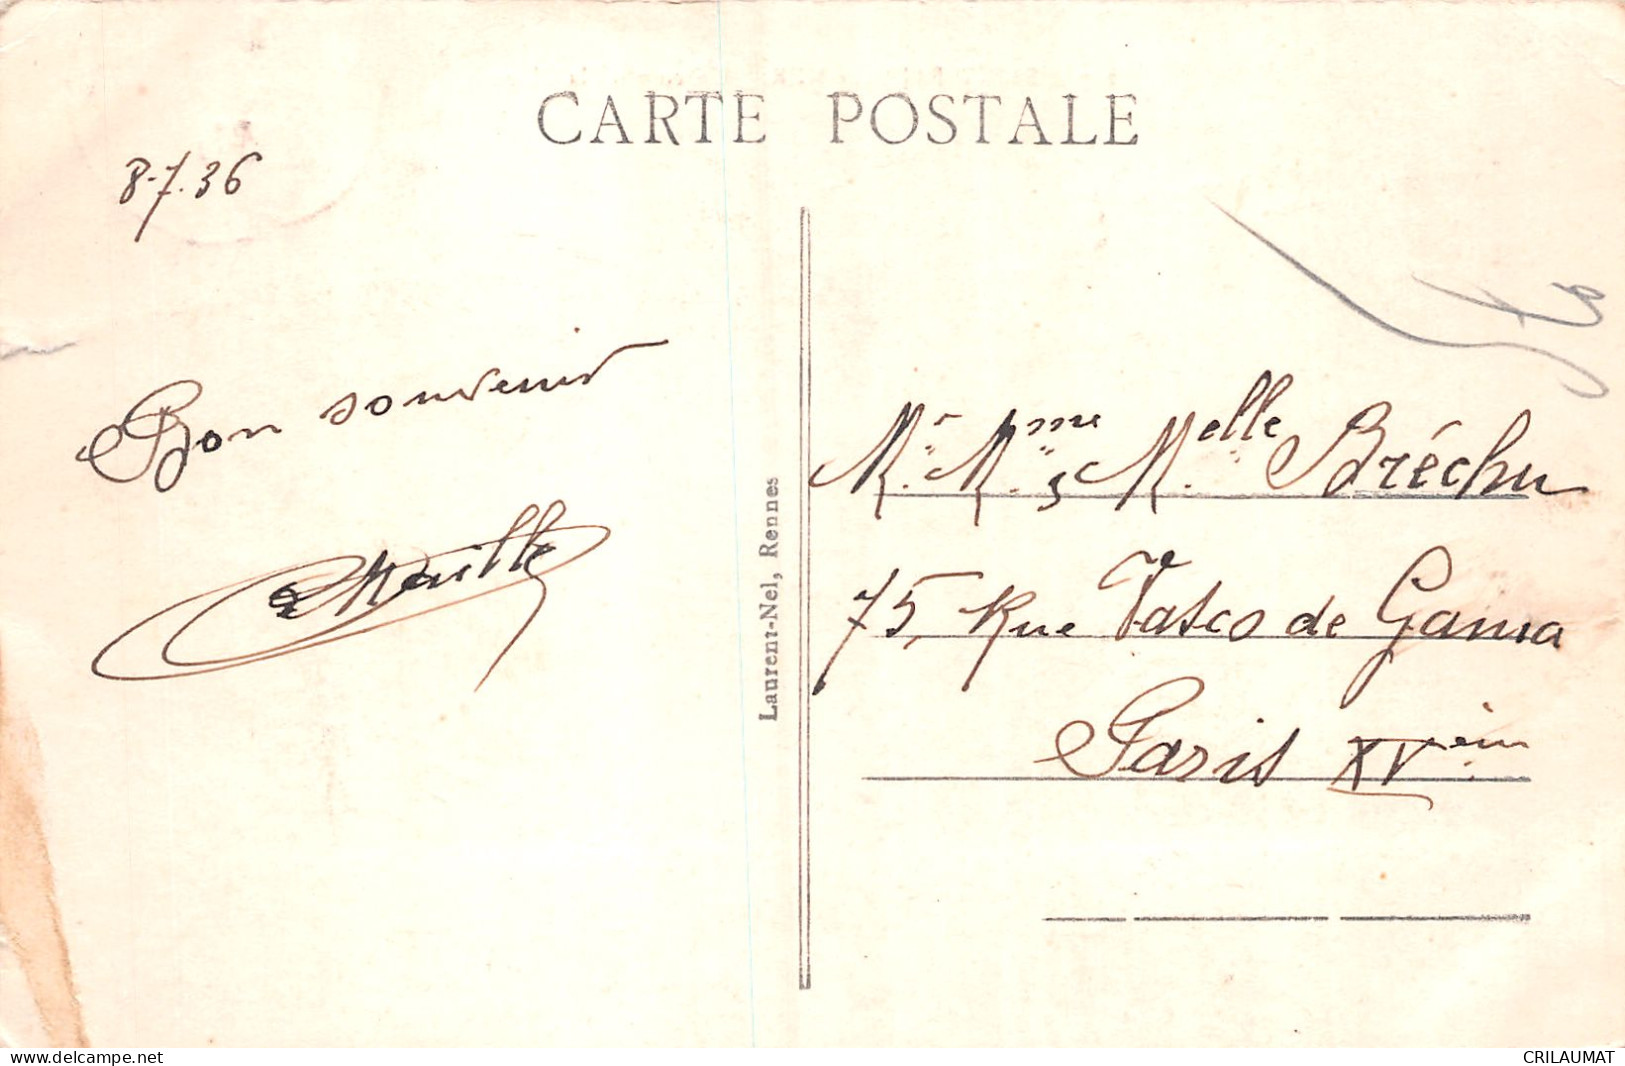 CARTE POSTALE
8-7.36
Bon souvenir
Laurent-Nel, Rennes
Mr. Mme & Melle Bréchu
75, Rue Vasco de Gama
Paris XVèm
www.delcampe.net
CRILAUMAT